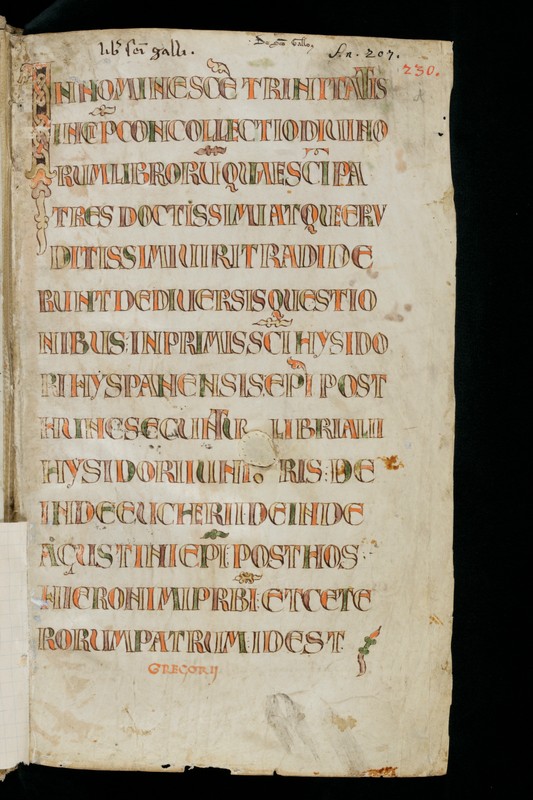 lib̄ sc̄i galli.
De s͞co Gallo.
S. n. 207.
230.
IN NOMINE SCE TRINITATIS
INCIP CONCOLLECTIO DIUINO
RUM LIBRORU QUAE SCI PA
TRES DOCTISSIMI ATQUE ERU
DITISSIMI UIRI TRADIDE
RUNT DE DIUERSIS QUESTIO
NIBUS: IN PRIMIS SCI HYSIDO
RI HYSPANENSIS EPI POST
HUNC SEQUNTUR LIBRI ALII
HYSIDORI IUNI RIS: DE
INDE EUCHERII DEINDE
AGUSTINI EPI POST HOS
HIERONIMI PRBI: ET CETE
RORUM PATRUM: ID EST
GREGORII